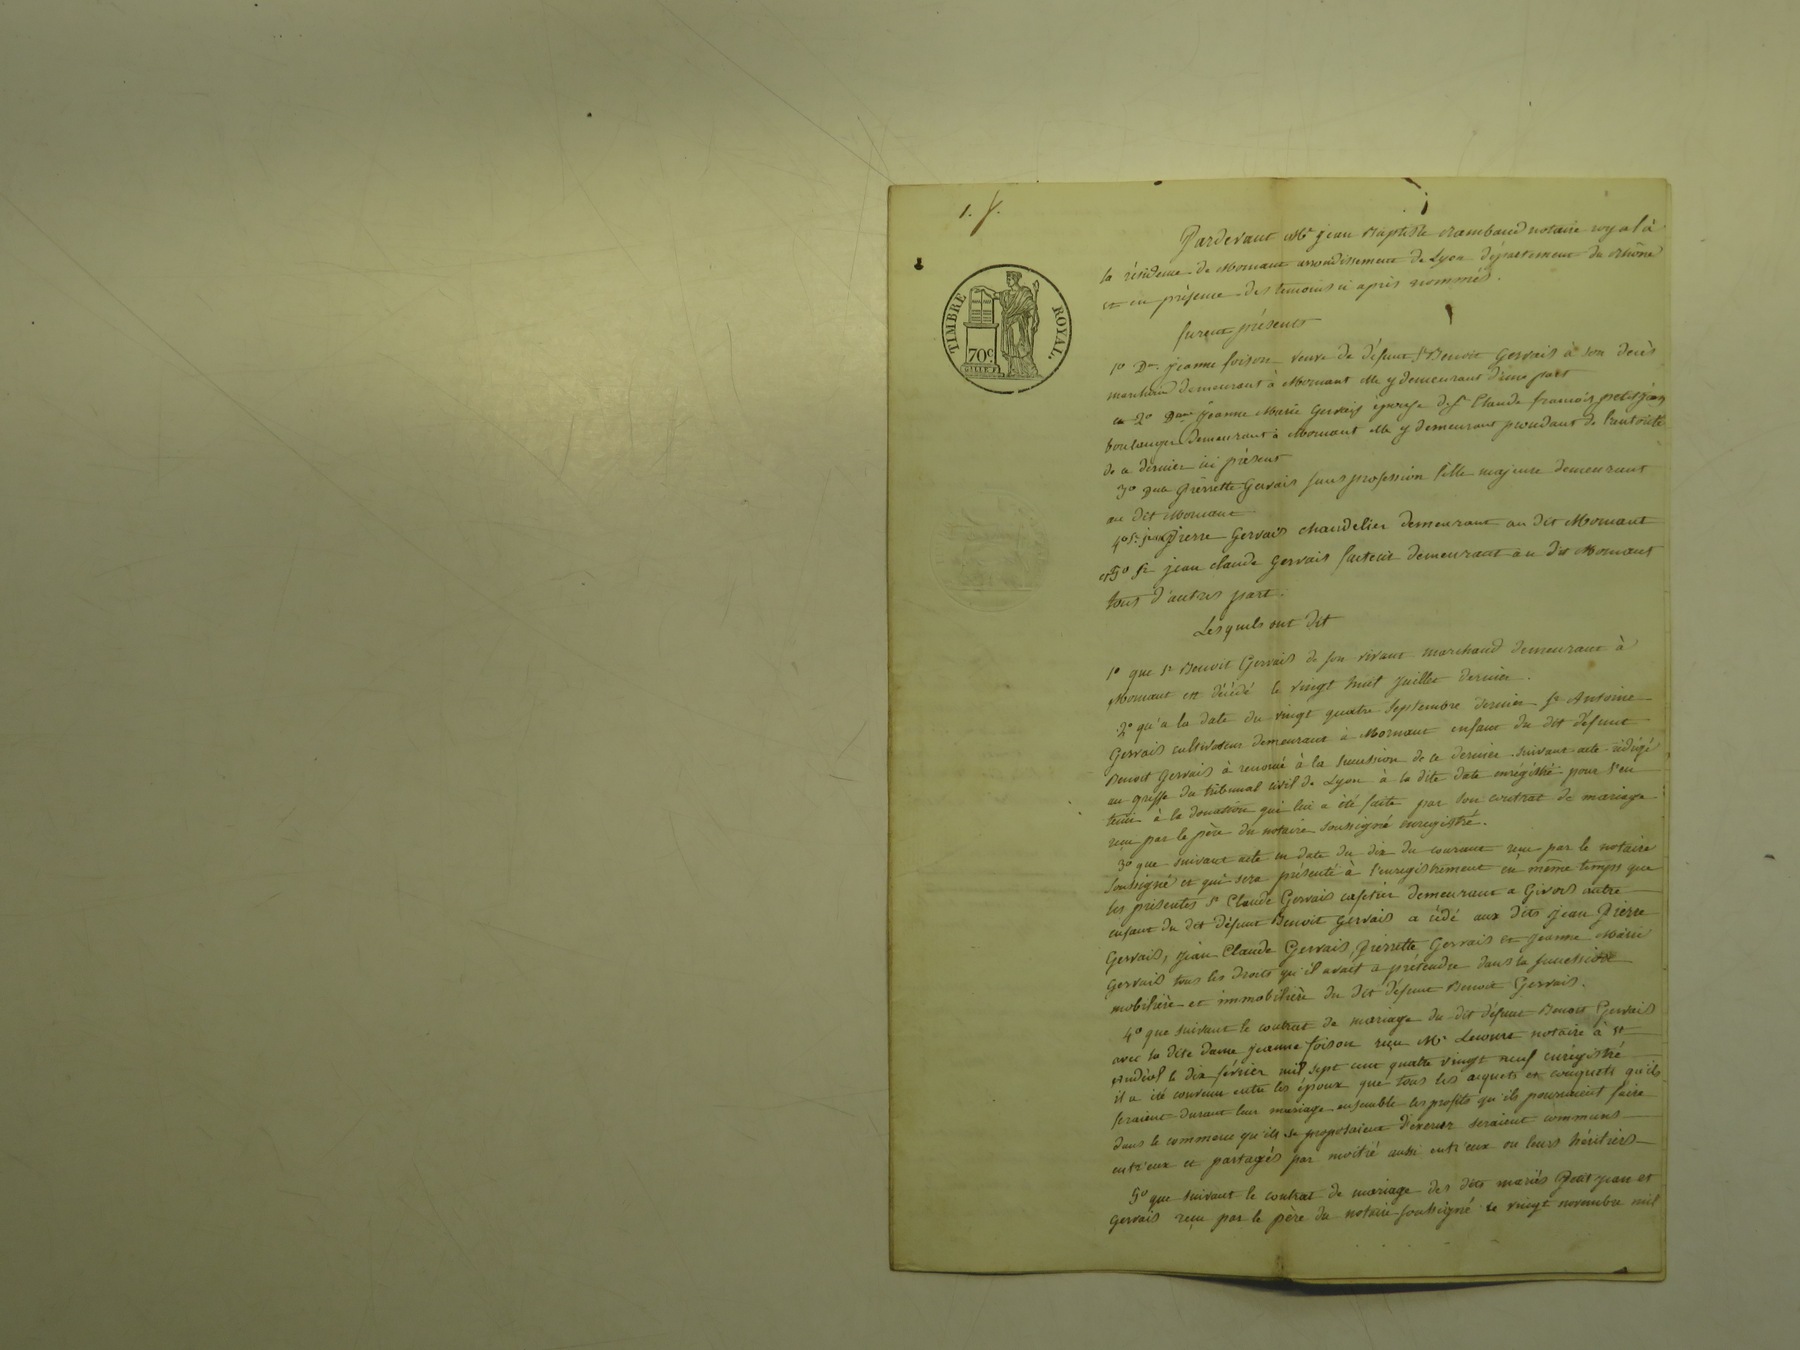 1.
TIMBRE ROYAL.
70c
Pardevant Me jean Baptiste Rambaud notaire royal à
la résidence de Mornant arrondissement de Lyon département du Rhône
et en présence des temoins ci après nommés.
furent présents
1º De. jeanne foison veuve de défunt Sr Benoit Gervais à son decès
marchand demeurant à Mornant elle y demeurant d'une part
2º Dame jeanne Marie Gervais epouse de Sr Claude françois petitjean
boulanger demeurant à Mornant elle y demeurant procedant de l'autorité
de ce dernier ici présent
3º Delle Pierrette Gervais sans profession fille majeure demeurant
au dit Mornant
4º Sr jean Pierre Gervais chandelier demeurant au dit Mornant
et 5º Sr jean claude Gervais facteur demeurant au dit Mornant
tous d'autres part.
Lesquels ont dit
1º que Sr Benoit Gervais de son vivant marchand demeurant à
Mornant est décédé le vingt huit juillet dernier.
2º qu'a la date du vingt quatre septembre dernier Sr Antoine
Gervais cultivateur demeurant à Mornant enfant du dit défunt
Benoit Gervais à renoncé à la succession de ce dernier suivant acte rédigé
au greffe du tribunal civil de Lyon à la dite date enrégistré pour s'en
tenir à la donation qui lui a été faite par son contrat de mariage
reçu par le père du notaire soussigné enregistré.
3º que suivant acte en date du dix du courant reçu par le notaire
soussigné et qui sera présenté à l'enregistrement en même temps que
les présentes Sr Claude Gervais cafetier demeurant a Givors autre
enfant du dit défunt Benoit Gervais a cédé aux dits jean Pierre
Gervais, jean Claude Gervais, Pierrette Gervais et jeanne Marie
Gervais tous les droits qu'il avait a prétendre dans la succession
mobilière et immobilière du dit défunt Benoit Gervais.
4º que suivant le contrat de mariage du dit défunt Benoit Gervais
avec la dite dame jeanne foison reçu Me notaire à St
andéol le dix février mil sept cent quatre vingt neuf enrégistré
il a été convenu entre les époux que tous les acquets et conquets qu'ils
feraient durant leur mariage ensemble les profits qu'ils pourraient faire
dans le commerce qu'ils se proposaient d'exercer seraient communs
entr'eux et partagés par moitié aussi entr'eux ou leurs héritiers
5º que suivant le contrat de mariage des dits mariés Petit jean et
Gervais reçu par le père du notaire soussigné le vingt novembre mil